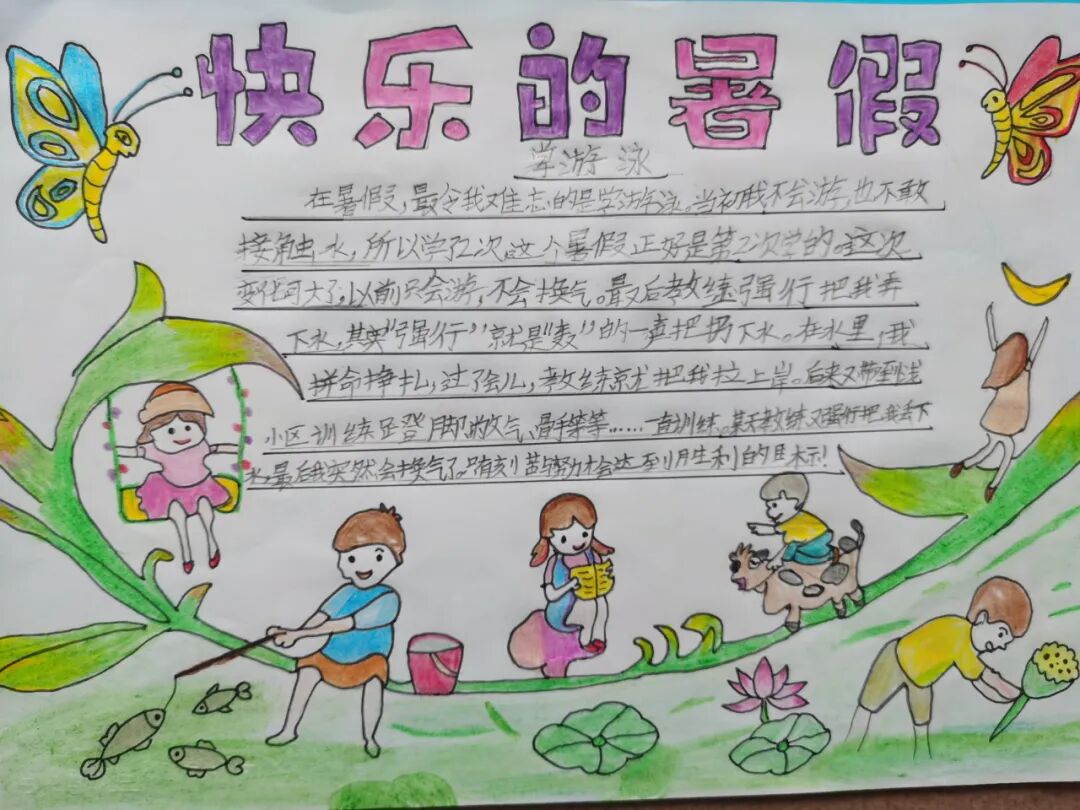 快乐的暑假
学游泳
在暑假,最令我难忘的是学游泳。当初我不会游,也不敢
接触水,所以学了2次。这个暑假正好是第2次学的。这次
变化可大了,以前只会游,不会换气。最后教练强行把我弄
下水,其实“强行”就是“轰”的一声把扔下水。在水里,我
拼命挣扎,过了会儿,教练就把我拉上岸。后来又带到浅
小区训练足登脚放气、滑手等等……一直训练。某天教练又强行把我丢下
水,最后我突然会换气了。只有刻苦与努力才会达到胜利的目标!